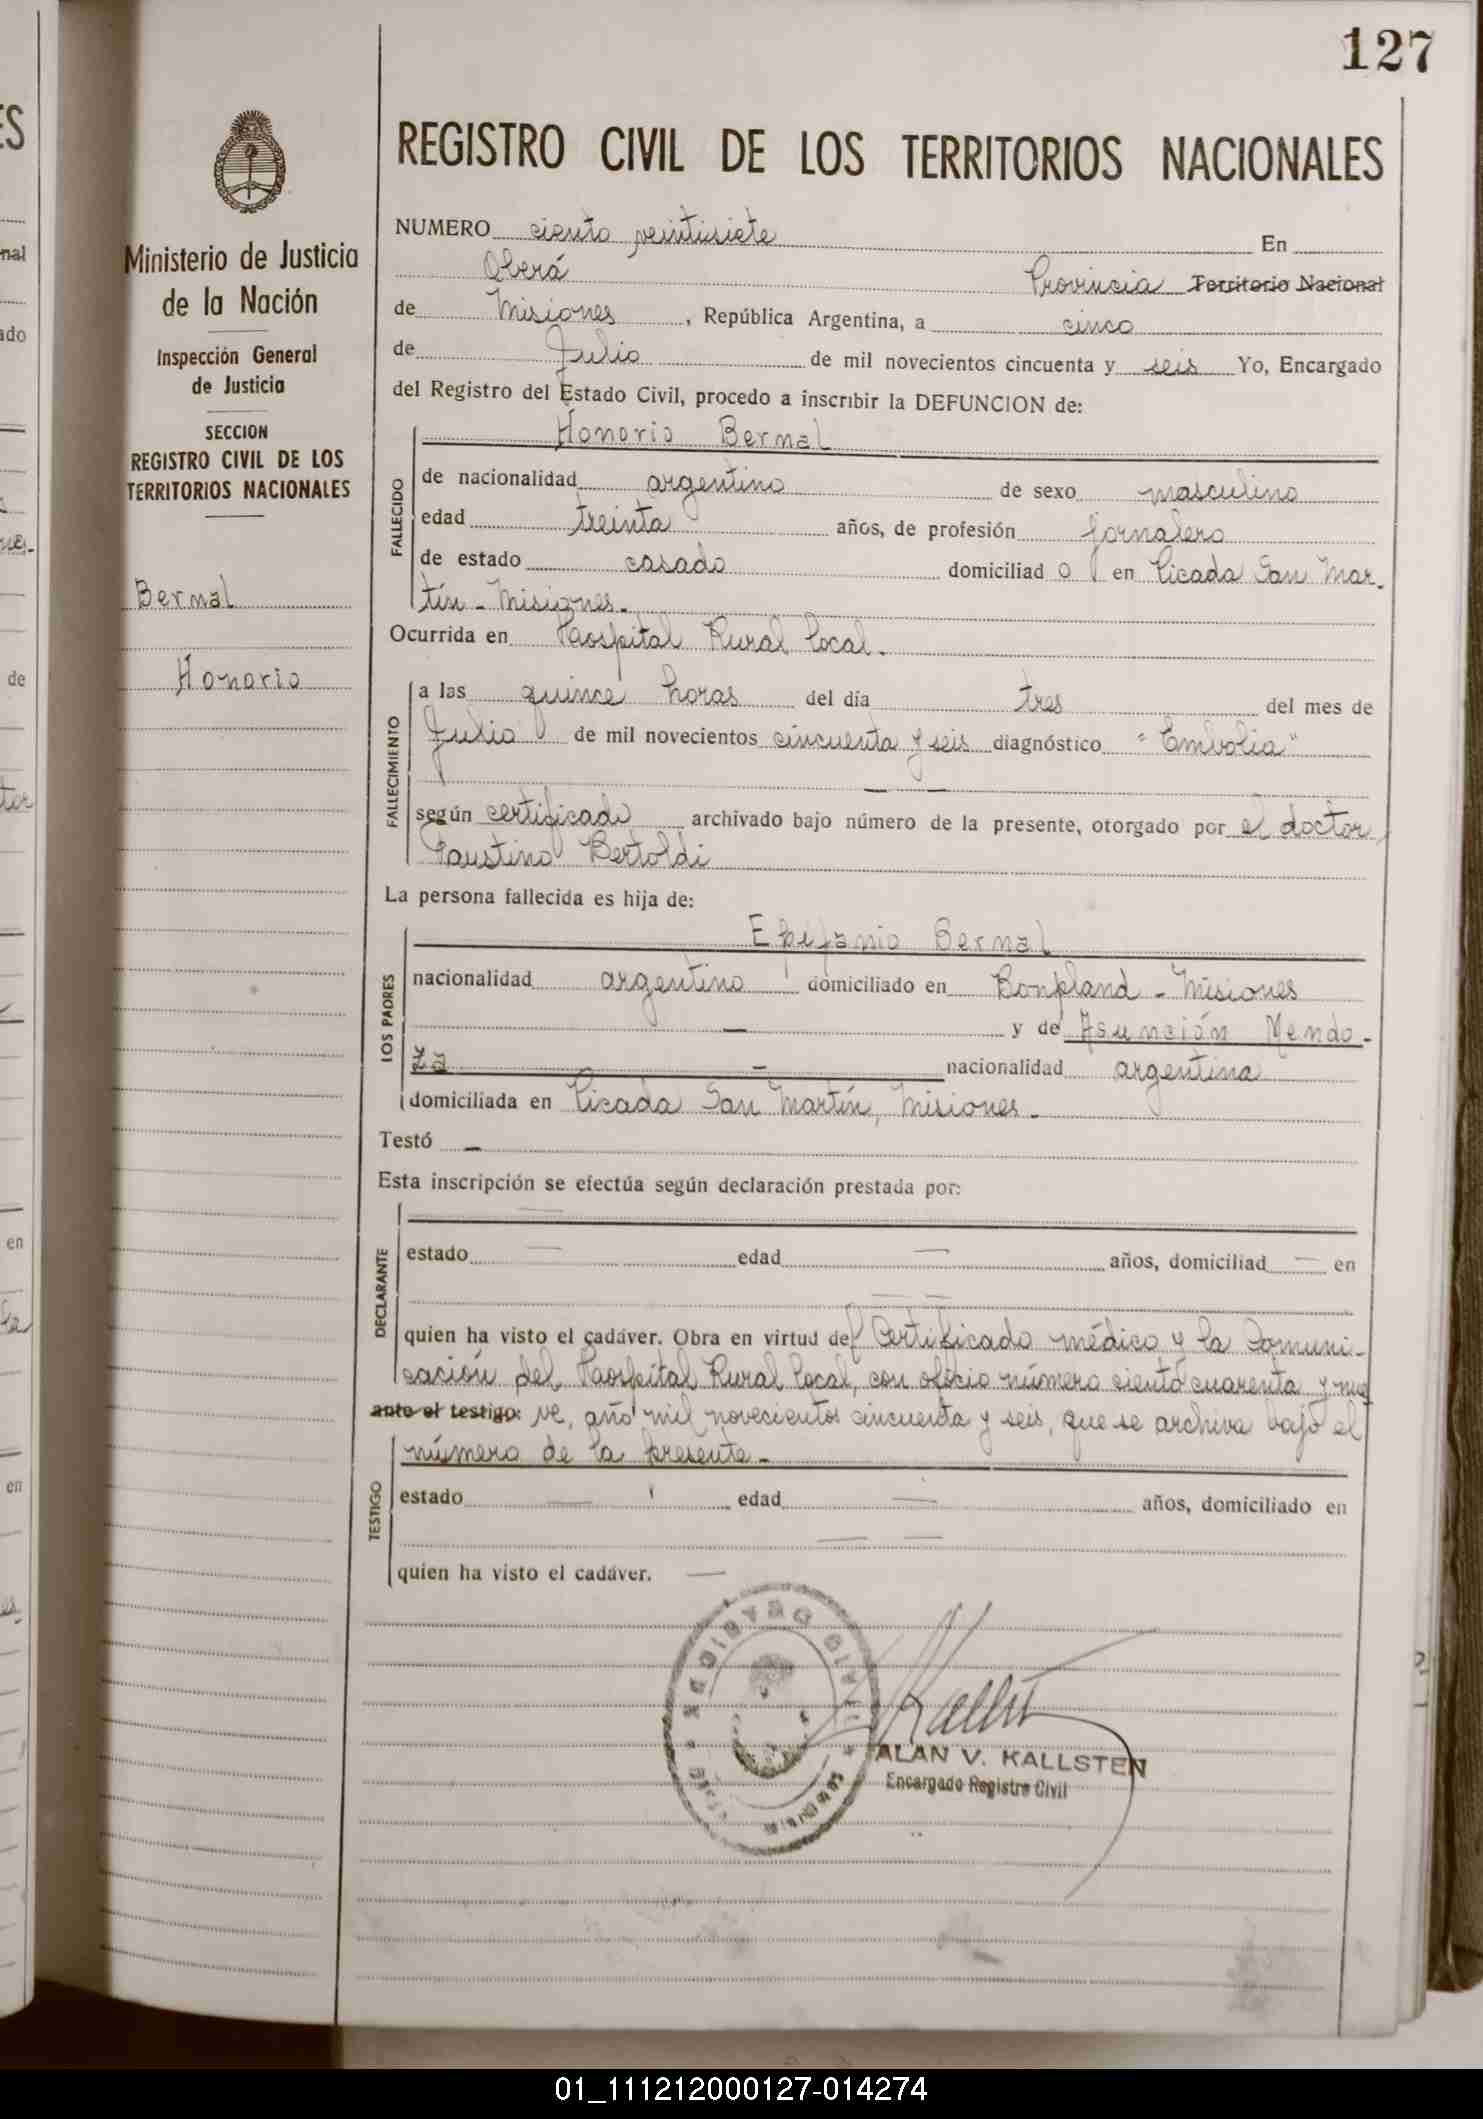 127
REGISTRO CIVIL DE LOS TERRITORIOS NACIONALES
Ministerio de Justicia
de la Nación
Inspección General
de Justicia
SECCION
REGISTRO CIVIL DE LOS
TERRITORIOS NACIONALES
Bernal
Honorio
NUMERO ciento veintisiete En
Oberá Provincia Territorio Nacional
de Misiones, República Argentina, a cinco
de Julio de mil novecientos cincuenta y seis Yo, Encargado
del Registro del Estado Civil, procedo a inscribir la DEFUNCION de:
Honorio Bernal
FALLECIDO
de nacionalidad argentino de sexo masculino
edad treinta años, de profesión jornalero
de estado casado domiciliado en Picada San Mar-
tín - Misiones.
Ocurrida en Hospital Rural Local.
FALLECIMIENTO
a las quince horas del día tres del mes de
Julio de mil novecientos cincuenta y seis diagnóstico "Embolia"
según certificado archivado bajo número de la presente, otorgado por el doctor
Faustino Bertoldi
La persona fallecida es hija de:
LOS PADRES
Epifanio Bernal
nacionalidad argentino domiciliado en Bonpland - Misiones
y de Asunción Mendo-
za nacionalidad argentina
domiciliada en Picada San Martín, Misiones.
Testó
Esta inscripción se efectúa según declaración prestada por:
DECLARANTE
estado edad años, domiciliad en
quien ha visto el cadáver. Obra en virtud del Certificado médico y la Comuni-
cación del Hospital Rural Local, con oficio número ciento cuarenta y nue
ante el testigo: ve, año mil novecientos cincuenta y seis, que se archiva bajo el
número de la presente.
TESTIGO
estado edad años, domiciliado en
quien ha visto el cadáver.
REGISTRO CIVIL
MISIONES
ALAN V. KALLSTEN
Encargado Registro Civil
01_111212000127-014274